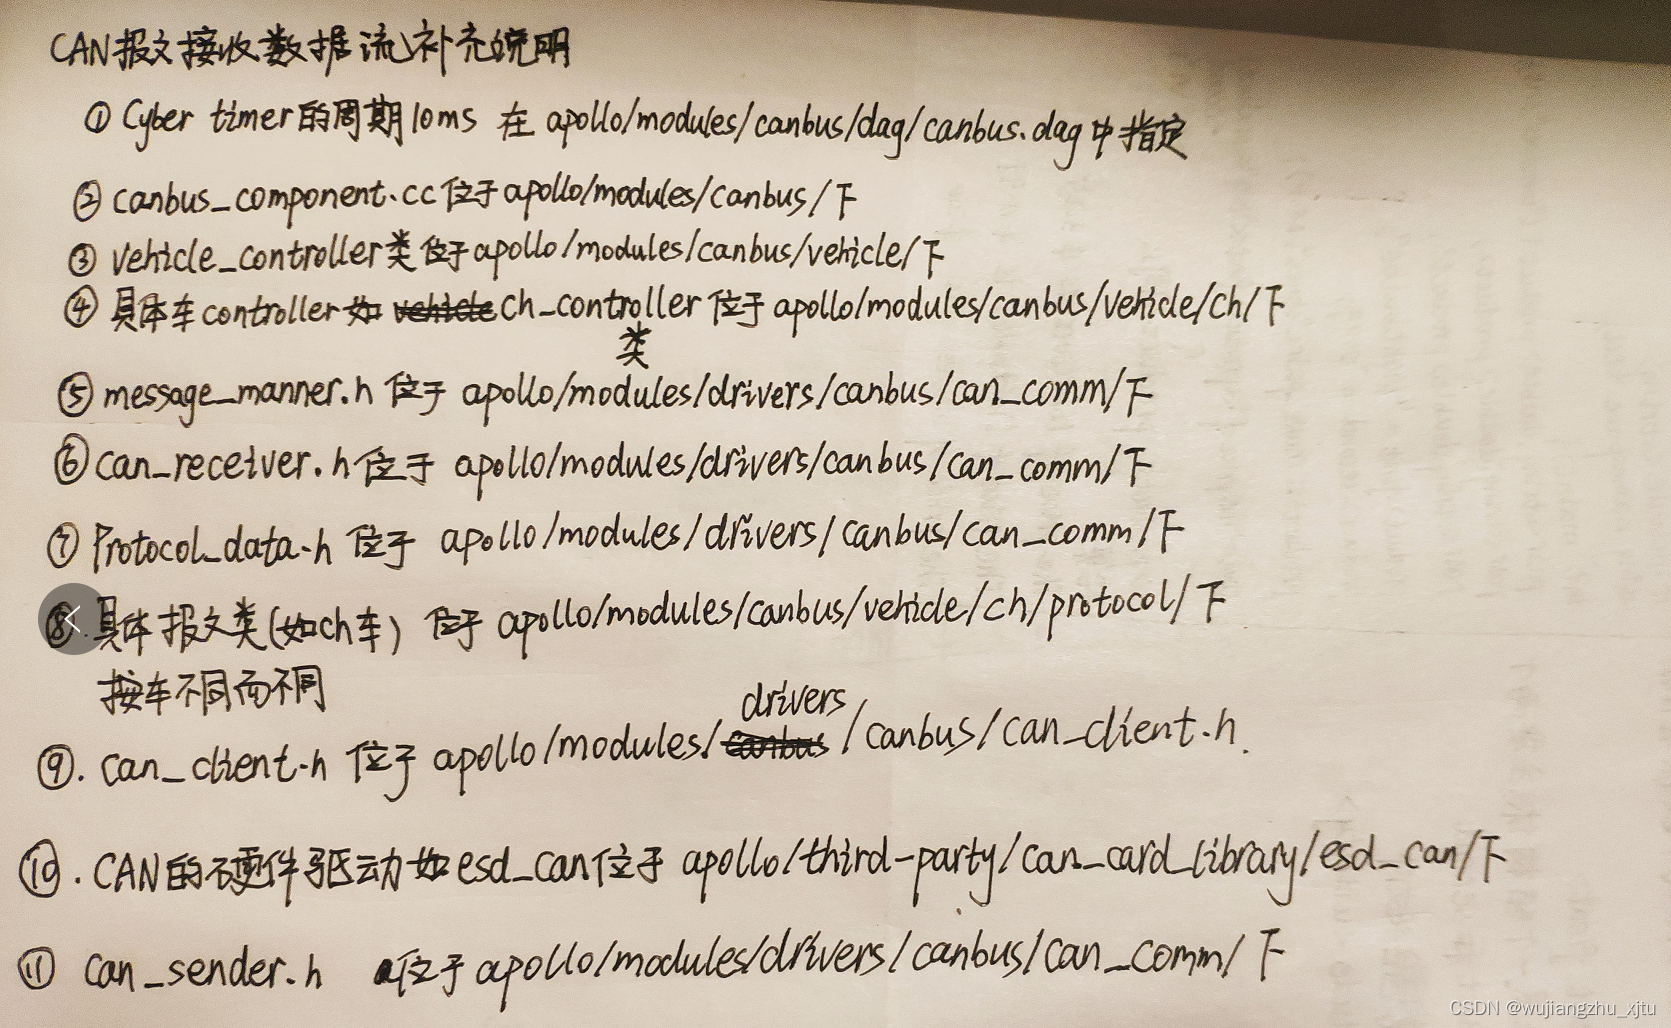 CAN报文接收数据流补充说明
① Cyber timer的周期10ms 在 apollo/modules/canbus/dag/canbus.dag中指定
② canbus_component.cc位于apollo/modules/canbus/下
③ vehicle_controller类位于apollo/modules/canbus/vehicle/下
④ 具体车controller如 ch_controller 位于 apollo/modules/canbus/vehicle/ch/下
类
⑤ message_manner.h 位于 apollo/modules/drivers/canbus/can_comm/下
⑥ can_receiver.h位于 apollo/modules/drivers/canbus/can_comm/下
⑦ Protocol_data.h 位于 apollo/modules/drivers/canbus/can_comm/下
⑧. 具体报文类(如ch车) 位于 apollo/modules/canbus/vehicle/ch/protocol/下
按车不同而不同
drivers
⑨. can_client.h 位于 apollo/modules/canbus/canbus/can_client.h.
⑩. CAN的硬件驱动如esd_can位于 apollo/third-party/can_card_library/esd_can/下
⑪ can_sender.h 位于apollo/modules/drivers/canbus/can_comm/下
CSDN @wujiangzhu_xjtu